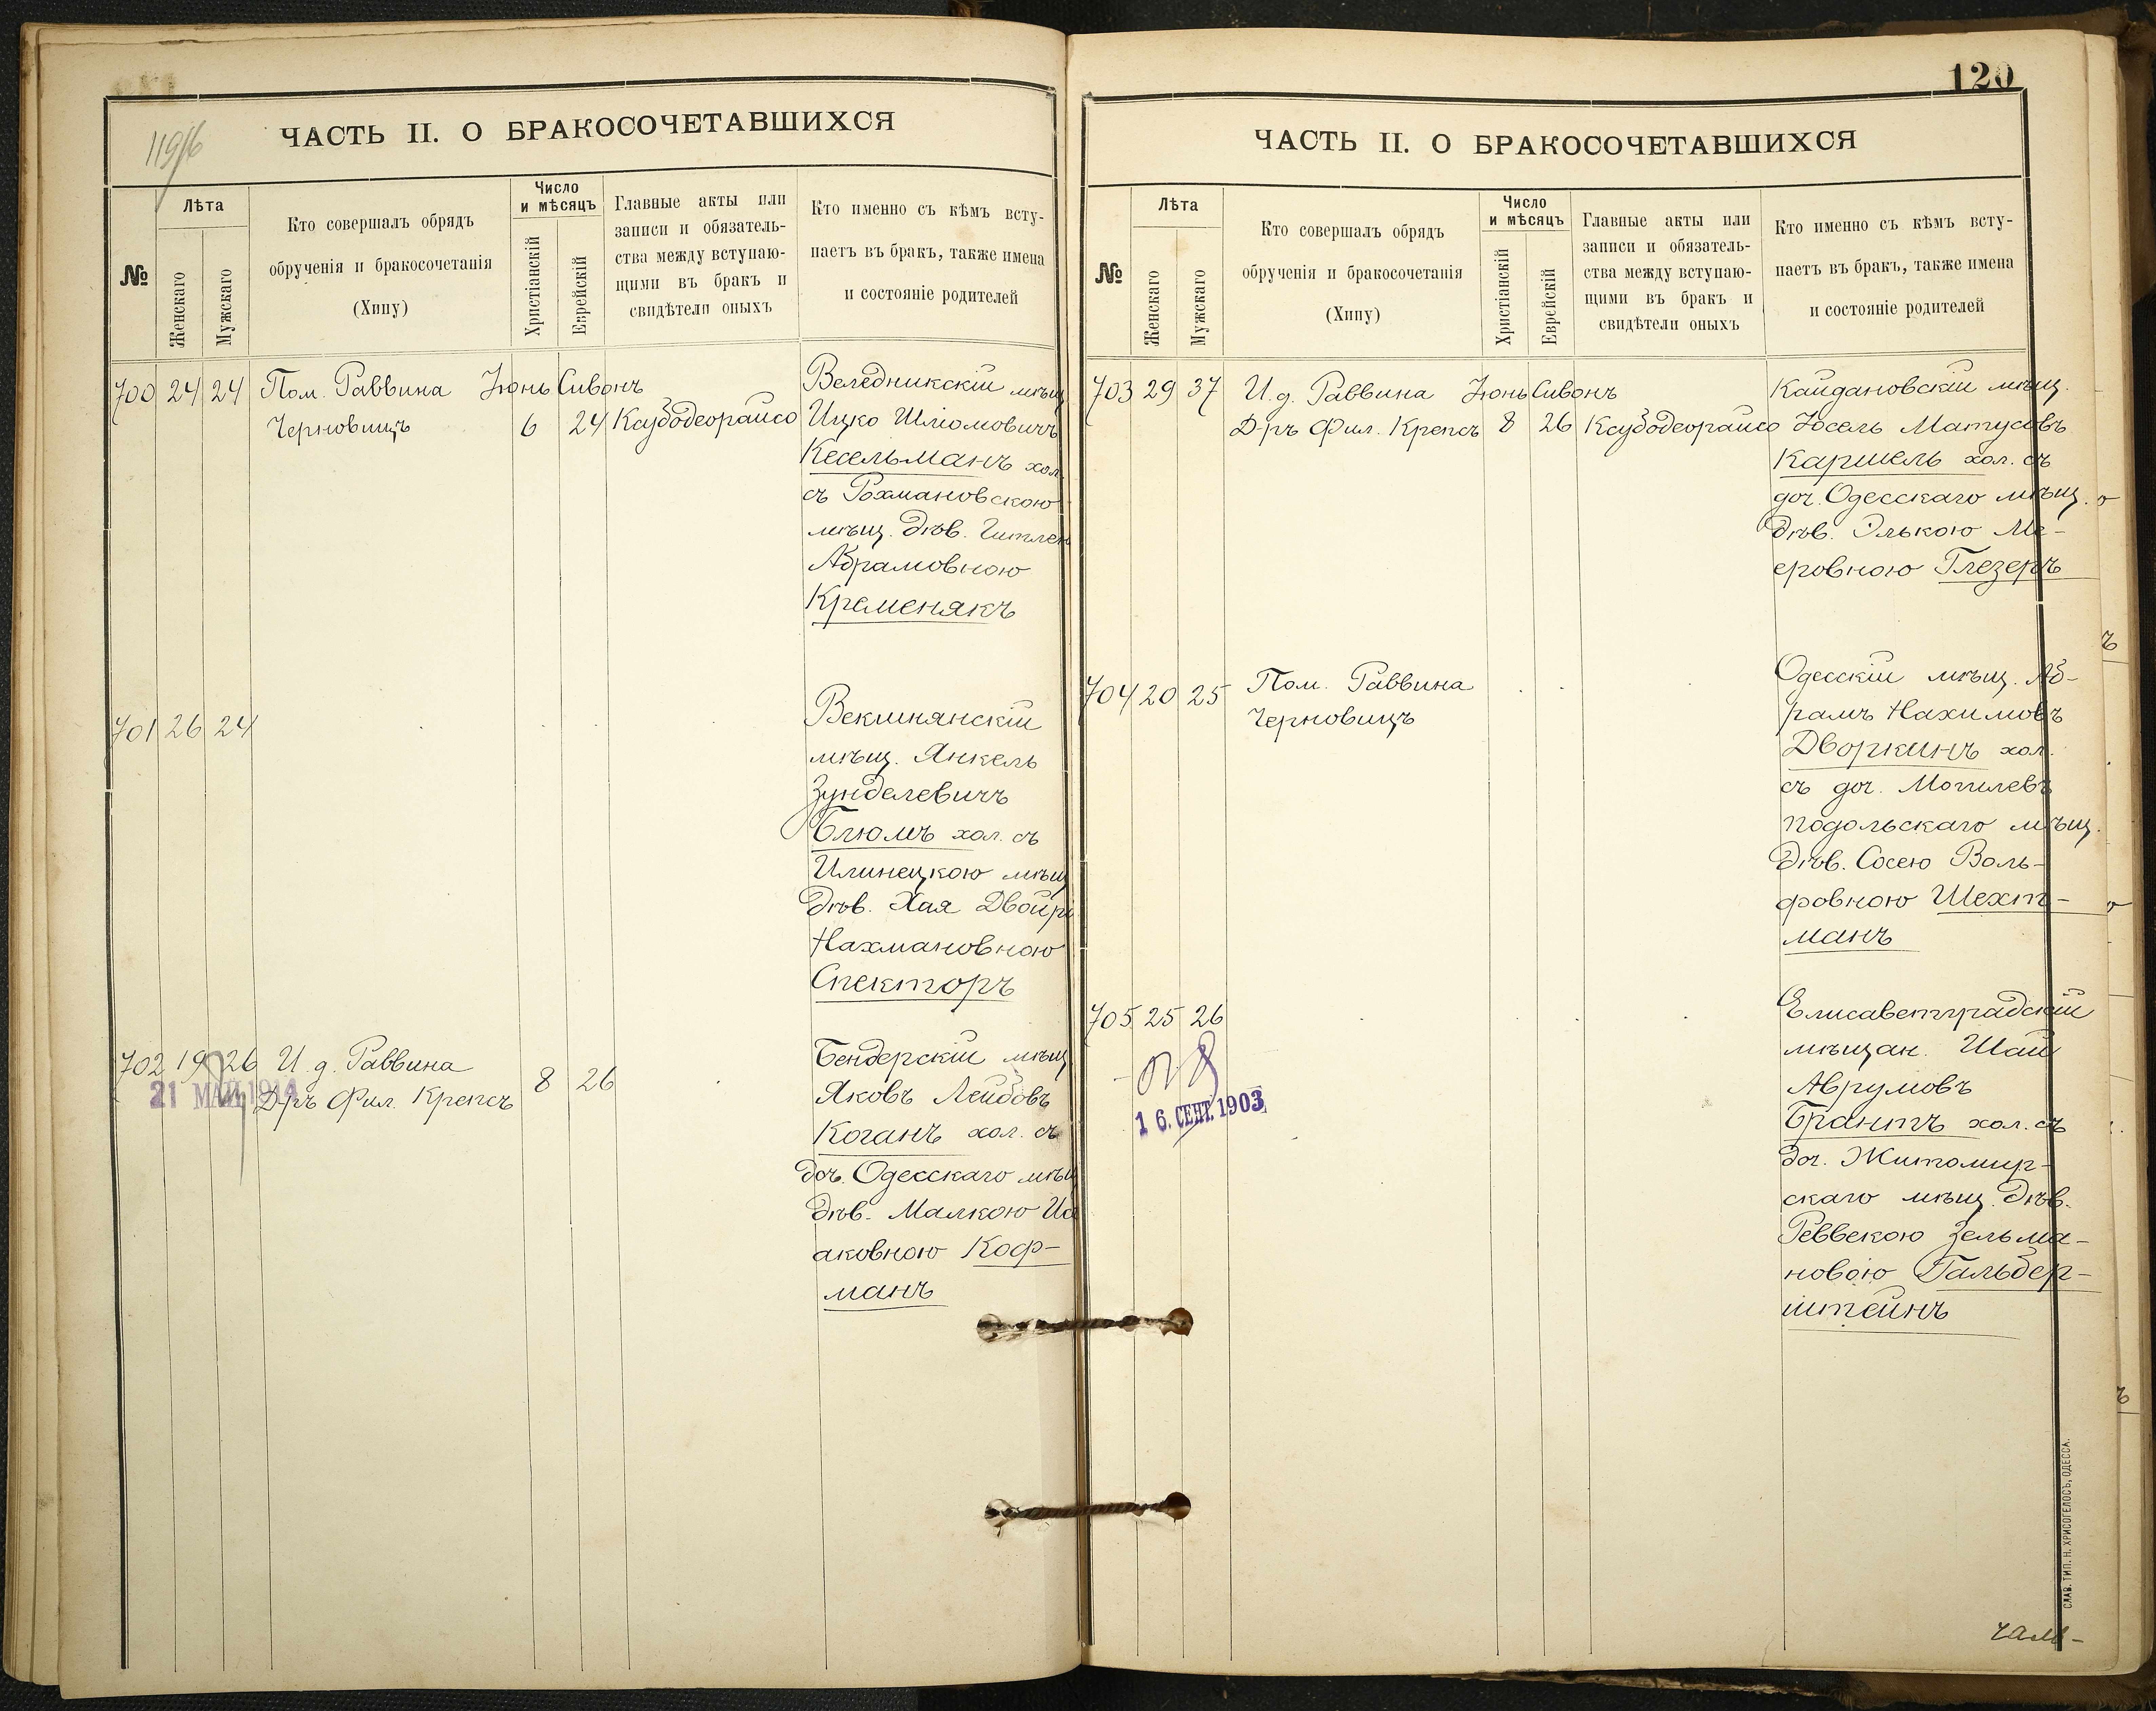 119/16
ЧАСТЬ II. О БРАКОСОЧЕТАВШИХСЯ
№
Лѣта
Женскаго
Мужскаго
Кто совершалъ обрядъ
обрученія и бракосочетанія
(Хипу)
Число
и мѣсяцъ
Христіанскій
Еврейскій
Главные акты или
записи и обязатель-
ства между вступаю-
щими въ бракъ и
свидѣтели оныхъ
Кто именно съ кѣмъ всту-
паетъ въ бракъ, также имена
и состояніе родителей
700 24 24 Пом. Раввина Іюнь Сивонъ Веледникскій мѣщ
Черновицъ 6 24 Ксубодеорайсо Ицко Шліомовичъ
Кесельманъ хол.
съ Рохмановскою
мѣщ. дѣв. Гитлею
Абрамовною
Кременякъ
701 26 24 Векшнянскій
мѣщ. Янкель
Зунделевичъ
Блюмъ хол. съ
Илинецкою мѣщ
дѣв. Хая Двойр
Нахмановною
Спекторъ
702 19 26 И. д. Раввина Бендерскій мѣщ
21 МАЙ 1914
Д-ръ Фил. Крепсъ 8 26 Яковъ Лейбовъ
Коганъ хол. съ
доч. Одесскаго мѣщ
дѣв. Малкою Иса
аковною Коф-
манъ
120
ЧАСТЬ II. О БРАКОСОЧЕТАВШИХСЯ
№
Лѣта
Женскаго
Мужскаго
Кто совершалъ обрядъ
обрученія и бракосочетанія
(Хипу)
Число
и мѣсяцъ
Христіанскій
Еврейскій
Главные акты или
записи и обязатель-
ства между вступаю-
щими въ бракъ и
свидѣтели оныхъ
Кто именно съ кѣмъ всту-
паетъ въ бракъ, также имена
и состояніе родителей
703 29 37 И. д. Раввина Іюнь Сивонъ Кайдановскій мѣщ.
Д-ръ Фил. Крепсъ 8 26 Ксубодеорайсо Іосель Матусовъ
Каршель хол. съ
доч. Одесскаго мѣщ.
дѣв. Элькою Ме-
еровною Глезеръ
704 20 25 Пом. Раввина Одесскій мѣщ. Аб-
Черновицъ рамъ Нахимовъ
Дворкинъ хол.
съ доч. Могилевъ
подольскаго мѣщ.
дѣв. Сосею Воль-
фовною Шехт-
манъ
705 25 26 Елисаветградскій
мѣщан. Шай
Аврумовъ
16. СЕНТ. 1903
Брантъ хол. съ
доч. Житомир-
скаго мѣщ. дѣв.
Реввекою Зельма-
новою Гальбер-
штейнъ
СЛАВ. ТИП. Н. ХРИСОГЕЛОСЪ, ОДЕССА.